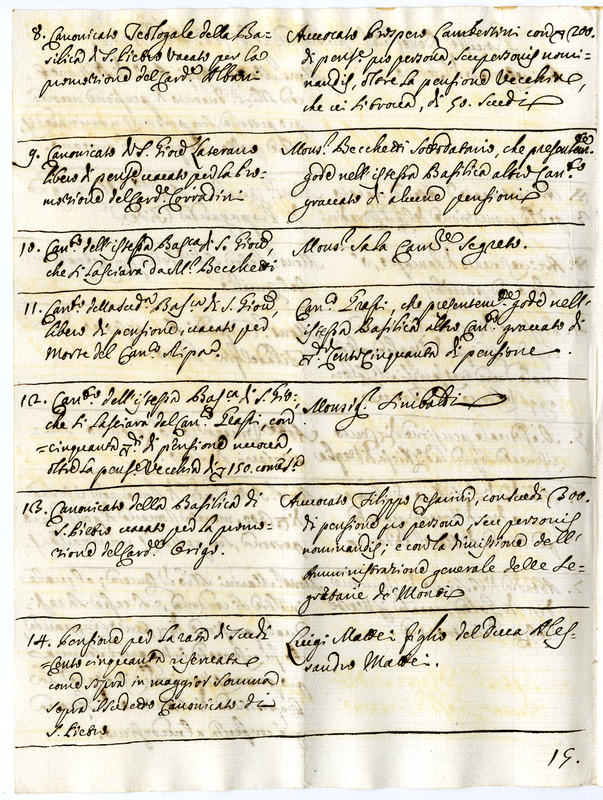 8. Canonicato Teologale della Ba=
silica di S. Pietro vacato per la
promozione del Card.e Albani
Avvocato Prospero Lambertini con 200.
di pens.e pro persona, seu personis nomi=
nandis, oltre la pensione vecchia,
che vi si trova, di 50. Scudi
9. Canonicato di S. Giov. Laterano
libero di pens.e vacato per la Pro=
mozione del Card. Corradini
Mons.r Becchetti Sottodatario, che presentem.te
gode nell'istessa Basilica altro Can.to
gravato di alcune pensioni
10. Can.to dell'istessa Bas.ca di S. Giov.,
che si lasciarà da M.r Becchetti
Mons.r Sala Cam.re Segreto.
11. Can.to della sud.a Bas.ca di S. Giov.,
libero di pensione, vacato per
Morte del Can.co Ripa.
Can.co Grassi, che presentem.te gode nell'
istessa Basilica altro Can.to gravato di
Cento Cinquanta di pensione.
12. Can.to dell'istessa Bas.ca di S. Gio.,
che si lasciarà dal Can.co Grassi, con
cinquanta di pensione nuova,
oltre la pens.e vecchia di 150.
Monsig.r Sinibaldi
13. Canonicato della Basilica di
S. Pietro vacato per la promo=
zione del Card.e Origo.
Avvocato Filippo con Scudi 300.
di pensione pro persona, seu personis
nominandis; e con la dimissione dell'
Amministrazione generale delle Se=
gretarie de Monti
14. Pensione per la rata di Scudi
=Cento cinquanta riservata
come sopra in maggior somma
sopra il sudetto Canonicato di
S. Pietro
Luigi Mattei figlio del Duca Ales=
sandro Mattei.
15.